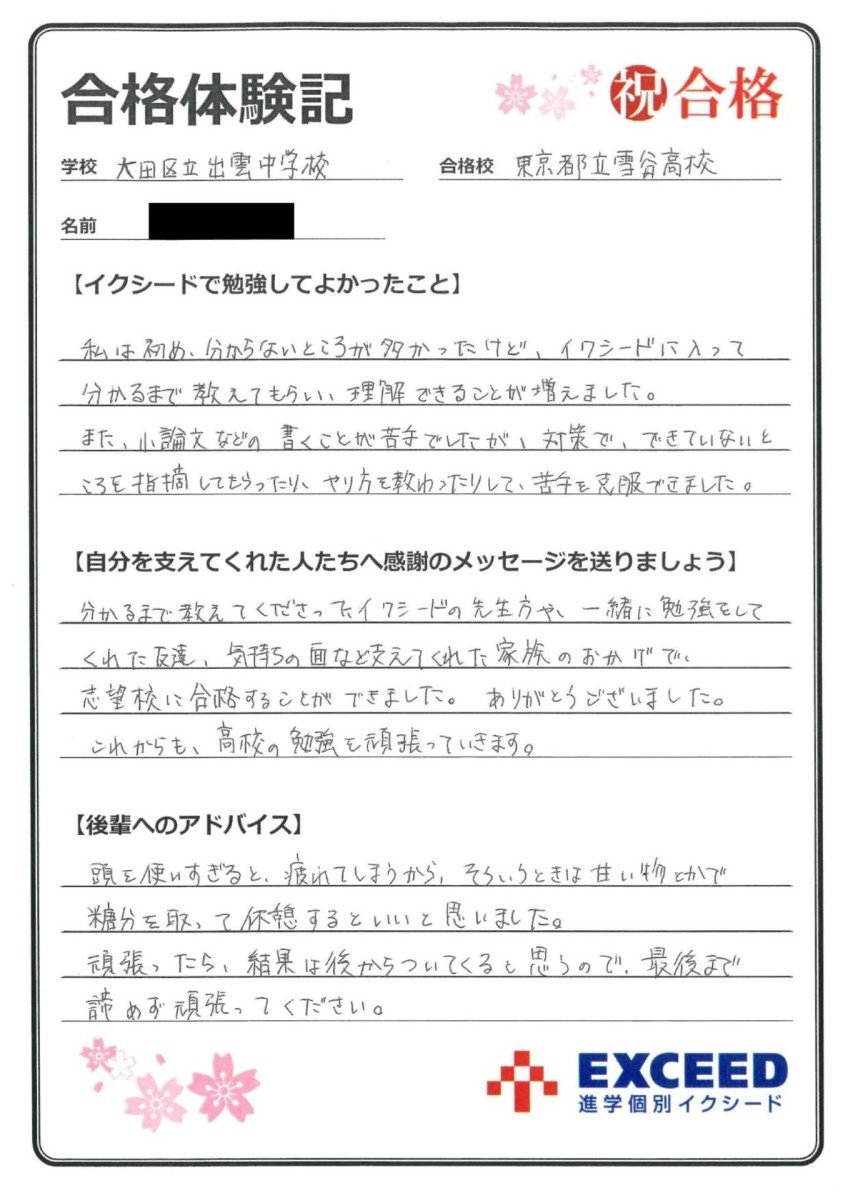 合格体験記
祝 合格
学校 大田区立出雲中学校
合格校 東京都立雪谷高校
名前
【イクシードで勉強してよかったこと】
私は初め、分からないところが多かったけど、イクシードに入って
分かるまで教えてもらい、理解できることが増えました。
また、小論文などの書くことが苦手でしたが、対策で、できていないと
ころを指摘してもらったり、やり方を教わったりして、苦手を克服できました。
【自分を支えてくれた人たちへ感謝のメッセージを送りましょう】
分かるまで教えてくださったイクシードの先生方や、一緒に勉強をして
くれた友達、気持ちの面など支えてくれた家族のおかげで、
志望校に合格することができました。ありがとうございました。
これからも、高校の勉強を頑張っていきます。
【後輩へのアドバイス】
頭を使いすぎると、疲れてしまうから、そういうときは甘い物とかで
糖分を取って休憩するといいと思いました。
頑張ったら、結果は後からついてくると思うので、最後まで
諦めず頑張ってください。
EXCEED
進学個別イクシード